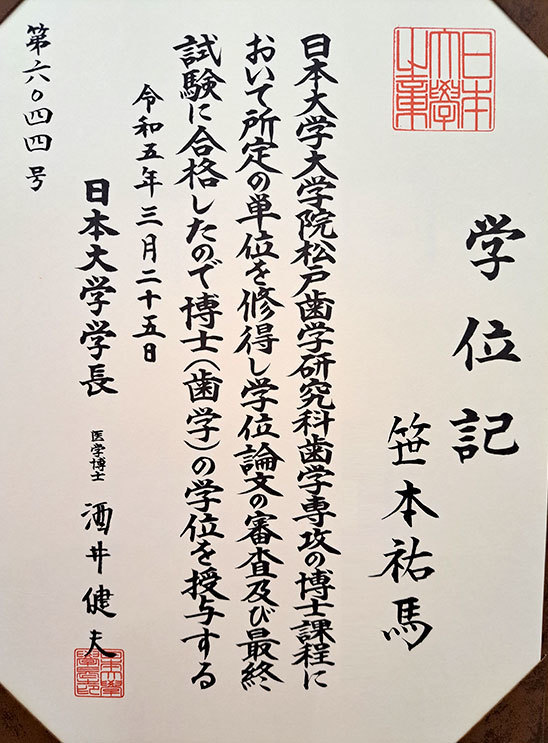 日本大学之章
学位記
笹本祐馬
日本大学大学院松戸歯学研究科歯学専攻の博士課程に
おいて所定の単位を修得し学位論文の審査及び最終
試験に合格したので博士(歯学)の学位を授与する
令和五年三月二十五日
日本大学学長 医学博士 酒井健夫
第六〇四四号